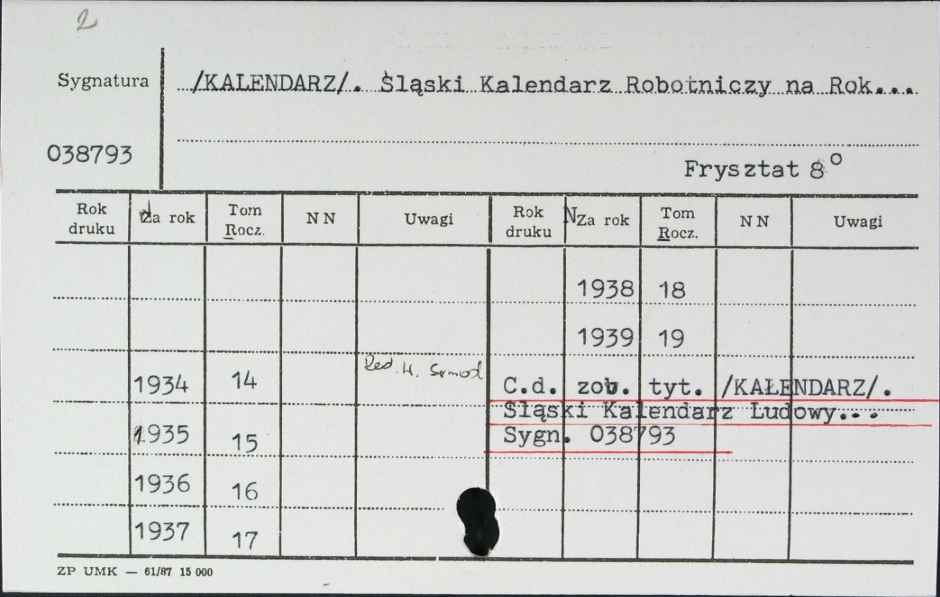 2
Sygnatura /KALENDARZ/. Śląski Kalendarz Robotniczy na Rok...
038793
Frysztat 8°
Rok druku Za rok Tom Rocz. NN Uwagi Rok druku Za rok Tom Rocz. NN Uwagi
1938 18
1939 19
1934 14 Red. H.
1935 15
1936 16
1937 17
C.d. zob. tyt. /KALENDARZ/.
Śląski Kalendarz Ludowy...
Sygn. 038793
ZP UMK — 61/87 15 000